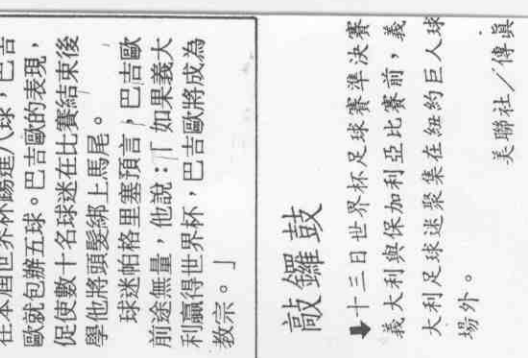 在本屆世界杯踢進八球，巴吉
歐就包辦五球。巴吉歐的表現，
促使數十名球迷在比賽結束後
學他將頭髮綁上馬尾。
球迷帕格里塞預言，巴吉歐
前途無量，他說：「如果義大
利贏得世界杯，巴吉歐將成為
教宗。」
敲鑼鼓
⬇十三日世界杯足球賽準決賽
義大利與保加利亞比賽前，義
大利足球迷聚集在紐約巨人球
場外。
美聯社／傳眞